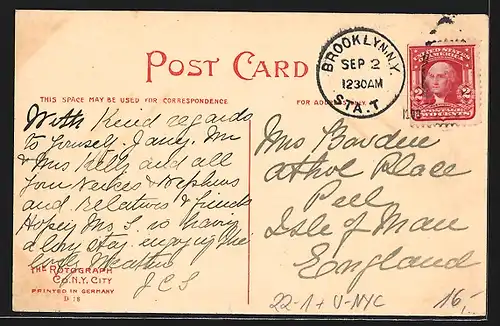 POST CARD
THIS SPACE MAY BE USED FOR CORRESPONDENCE
FOR ADD
BROOKLYN, N.Y.
SEP 2
1230AM
STA. T
UNITED STATES OF AMERICA
2 2
POSTAGE
TWO CENTS
With Kind regards
to yourself. Janey. Mr
& Mrs Kelly and all
your & Nephews
and Relatives & friends
Hoping Mrs S. is having
a long stay. enjoying the
Weather
J C S
Mrs Bowden
Athol Place
Peel
Isle of Man
England
THE ROTOGRAPH
CO. N.Y. CITY
PRINTED IN GERMANY
D 18
22-1+ U-NYC
16,-